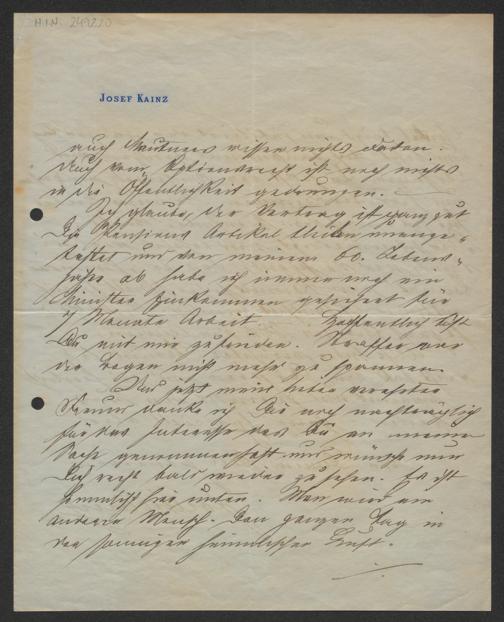 H.I.N. 249220
JOSEF KAINZ
auch Minutness wissen nichts davon.
Auch vom Optionsrecht ist noch nichts
in die Öffentlichkeit gedrungen.
Ich glaube, der Vertrag ist ganz gut
Die Pensions Artikel bleiben unange-
tastet und von meinem 60. Lebens-
jahre ab habe ich immer noch ein
Minister Einkommen gesichert für
7 Monate Arbeit. Hoffentlich bist
Du mit mir zufrieden. Straffer war
der Bogen nicht mehr zu spannen.
Und jetzt mein lieber verehrter
Freund danke ich Dir noch nachträglich
für das Interesse das Du an meiner
Sache genommen hast und wünsche mir
Dich recht bald wieder zu sehen. Es ist
himmlisch hier unten. Man wird ein
anderer Mensch. Den ganzen Tag in
der sonnigen himmlischen Luft.